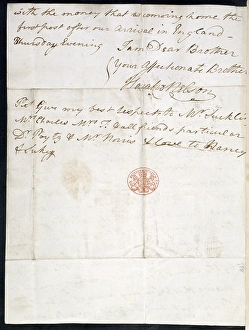 with the money that is coming home the
first post after our arrival in England —
Thursday Evening I am Dear Brother
Your Affectionate Brother
Horatio Nelson
Give my best respects to Mr. Suckling
Mrs. & all friends particular
Dr. Poyntz & Mr. Norris & love to Harry
& Suky